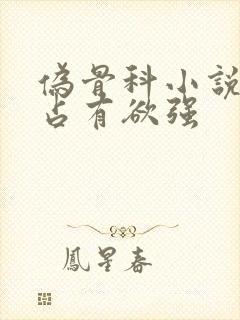 偽骨科小説
占有欲强
鳳星春